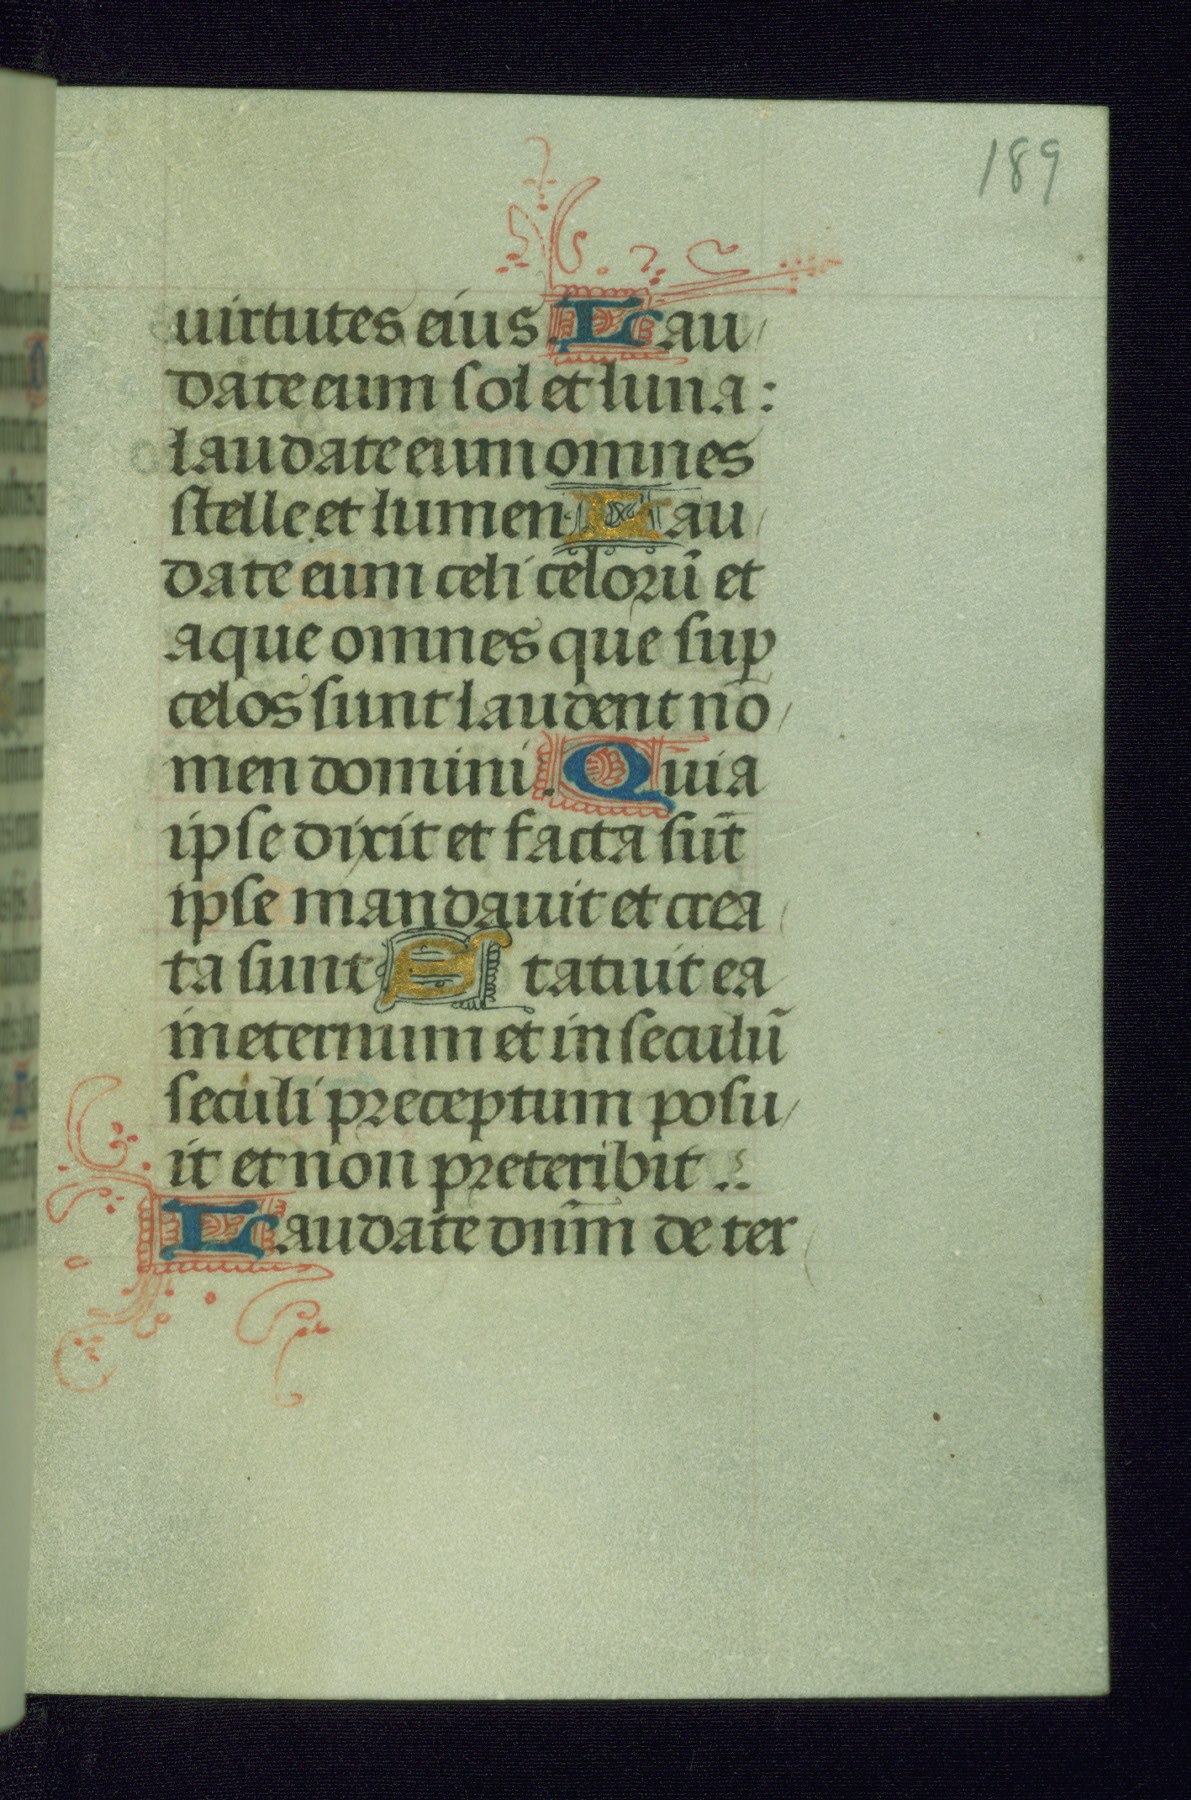 189
uirtutes eius. Lau
date eum sol et luna:
laudate eum omnes
stelle et lumen. Lau
date eum celi celorū et
aque omnes que sup̱
celos sunt laudent nō
men domini. Quia
ipse dixit et facta sūt
ipse mandauit et crea
ta sunt. Statuit ea
in eternum et in seculū
seculi preceptum posu
it et non preteribit.
Laudate dnm̄ de ter